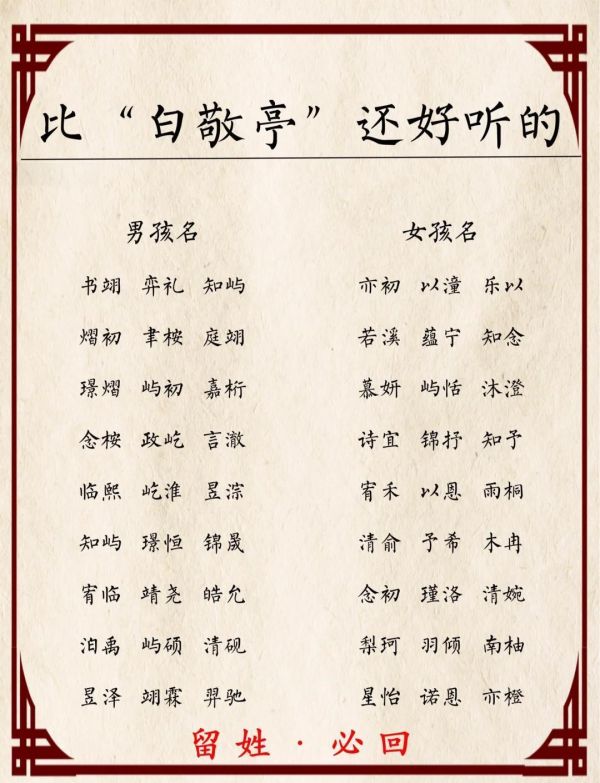 比“白敬亭”还好听的
男孩名
书翊 弈礼 知屿
熠初 聿桉 庭翊
璟熠 屿初 嘉桁
念桉 政屹 言澈
临熙 屹淮 昱淙
知屿 璟恒 锦晟
宥临 靖尧 皓允
洎禹 屿硕 清砚
昱泽 翊霖 羿驰
女孩名
亦初 以潼 乐以
若溪 蕴宁 知念
慕妍 屿恬 沐澄
诗宜 锦抒 知予
宥禾 以恩 雨桐
清俞 予希 木冉
念初 瑾洛 清婉
梨珂 羽倾 南柚
星怡 诺恩 亦橙
留姓·必回